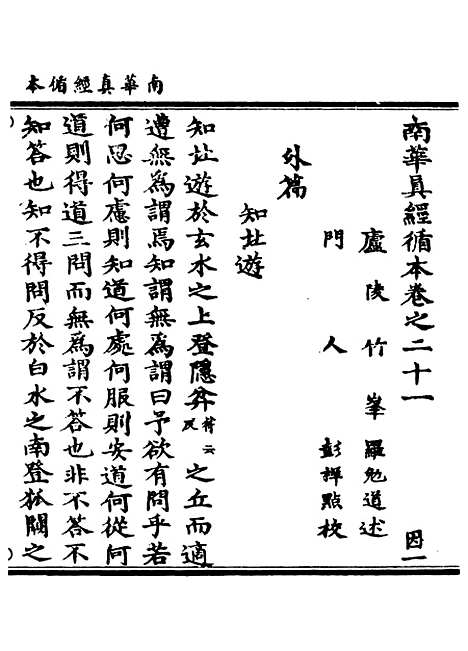 南華真經循本
南華眞經循本卷之二十一 四一
廬陵竹峯羅勉道述
門人彭祥點校
外篇
知北遊
知北遊於玄水之上登隱弅 符云反 之丘而適
遭無爲謂焉知謂無爲謂曰予欲有問乎若
何思何慮則知道何處何服則安道何從何
道則得道三問而無爲謂不答也非不答不
知答也知不得問反於白水之南登狐闋之